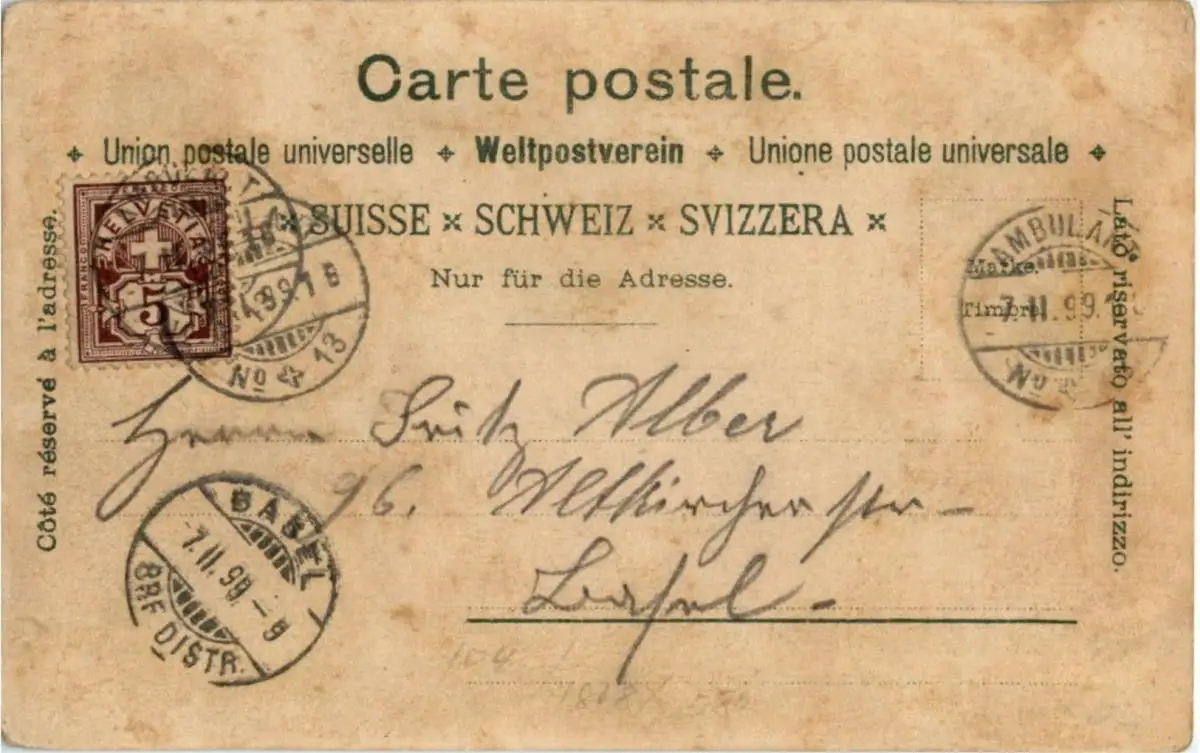 Carte postale.
Union postale universelle Weltpostverein Unione postale universale
SUISSE × SCHWEIZ × SVIZZERA
Nur für die Adresse.
Côté réservé à l'adresse.
Lato riservato all' indirizzo.
HELVETIA
FRANCO
5
No 13
AMBULANT
Marke.
Timbre.
7.II.99.
No
Herrn Fritz Alber
96. Altkircherstr-
Basel-
BASEL
-7.II.99.-9
BRF DISTR.